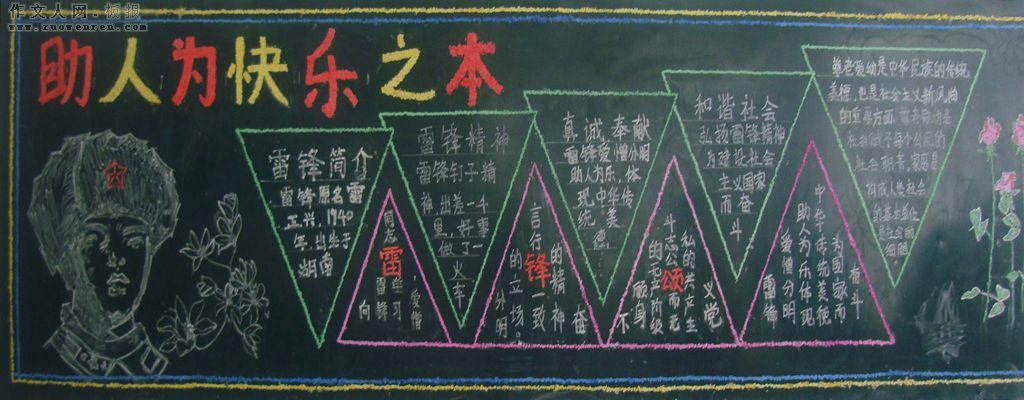 作文人网·板报
www.zuowenren.com
助人为快乐之本
雷锋简介
雷锋原名雷
正兴,1940
年,出生于
湖南
雷锋精神
雷锋钉子精
神,出差一千
里,好事
做了一
火车
真诚奉献
雷锋爱憎分明
助人为乐、体
现中华传
统美
德
和谐社会
弘扬雷锋精神
为建设社会
主义国家
而奋
斗
尊老爱幼是中华民族的传统
美德,也是社会主义新风尚
的重要方面,尊老爱幼是
社会赋予每个公民的
社会职责,家庭是
构成人类社会
的基本单位
是社会的
细胞
雷
向雷锋学习
爱憎
分明
的立场。
言行一致
锋
的精神
奋
不
顾身
的无产阶级
斗志公而无
颂
私的共产主义
党
雷锋
爱憎分明
助人为乐体现
中华传统美德
为国家而
奋斗